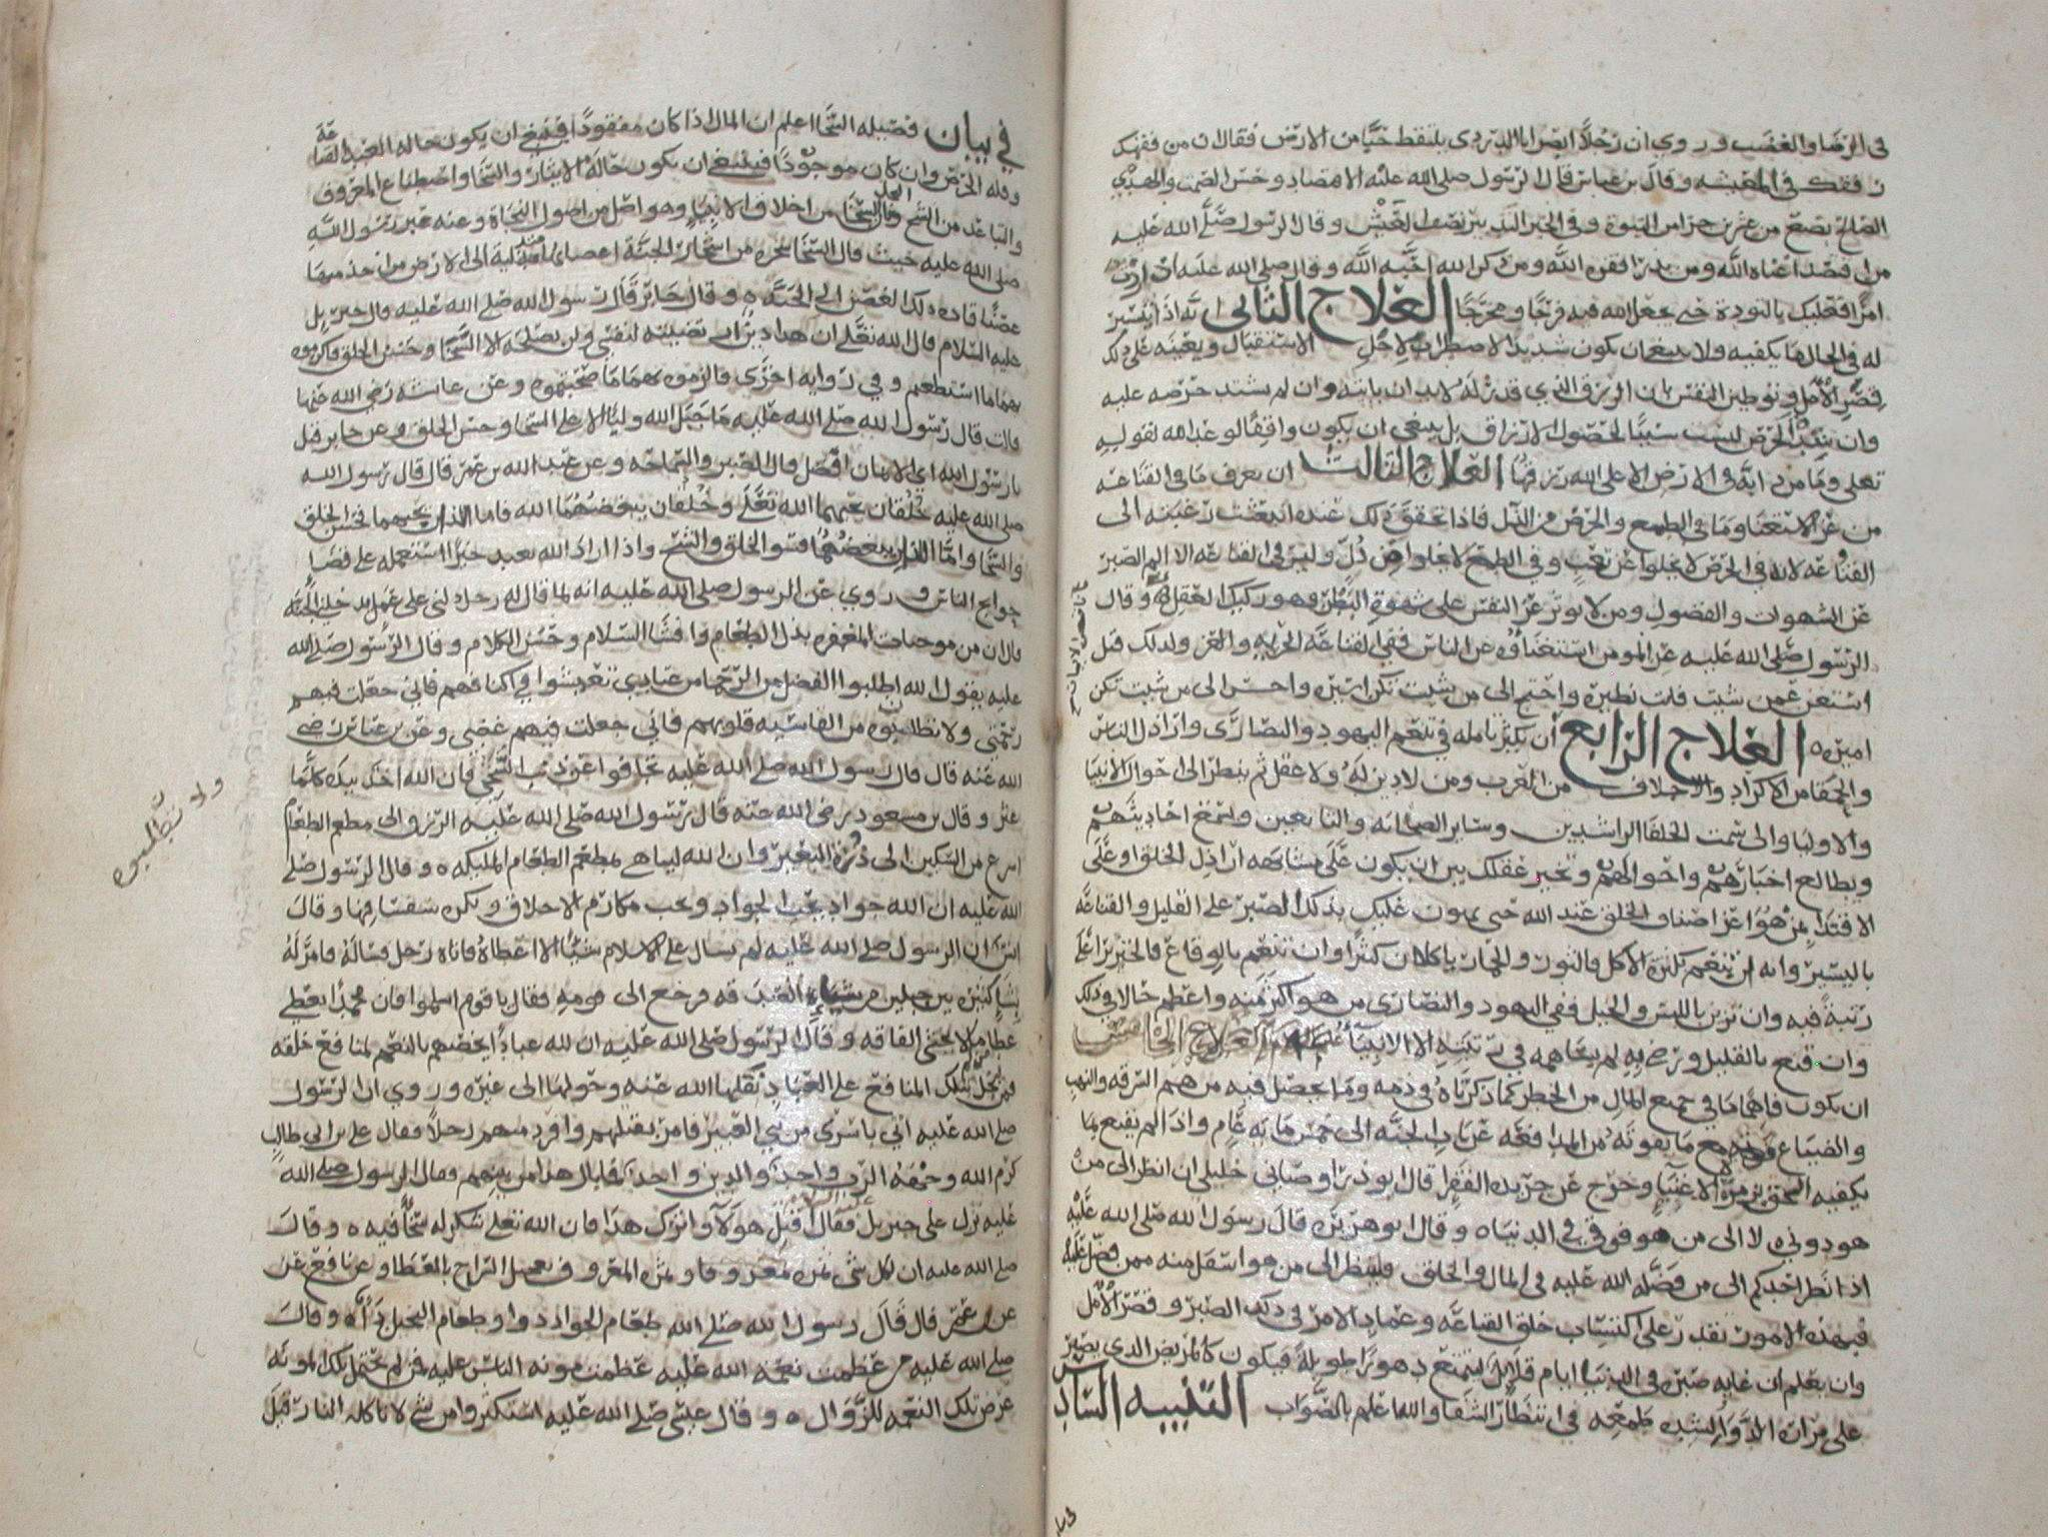 في الرضا والغضب وروي ان رجلاً ابصر ابا الدردى يلتقط حبًّا من الارض فقال ان من فقهك
رفقك في المعيشه وقال بن عباس قال الرسول صلى الله عليه الاقتصاد وحسن الصمت والهدي
الصالح بضع من عشرين جزا من النبوة وفي الخبر التدبير نصف العيش وقال الرسول صلى الله عليه
من اقتصد اغناه الله ومن بذر افقره الله ومن ذكر الله احبه الله وقال صلى الله عليه اذا اردت
امرًا فعليك بالتودة حتى يجعل الله فيه فرجًا ومخرجًا العلاج الثاني انه اذا تيسر
له في الحال ما يكفيه ولا ينبغي ان يكون شديد الاضطراب لاجل الاستقبال ويعينه على ذلك
قصر الامل وتوطين النفس بان الرزق الذي قدر له لا بد ان ياتيه وان لم يشتد حرصه عليه
وان شدة الحرص ليست سببًا لحصول الارزاق بل ينبغي ان يكون واثقًا لوعد الله لقوله
تعلى وما من دابة في الارض الا على الله رزقها العلاج الثالث ان يعرف ما في القناعه
من عز الاستغنا وما في الطمع والحرص من الذل فاذا تحقق ذلك عنده انبعثت رغبته الى
القناعه لانه في الحرص لا يخلوا عن تعب وفي الطمع لا يخلوا من ذل وليس في القناعه الا الم الصبر
عن الشهوات والفضول ومن لا يوثر عز النفس على شهوة البطن فهو ركيك العقل وقال
الرسول صلى الله عليه عز المومن استغناؤه عن الناس ففي القناعه الحريه والعز ولذلك قيل
استغن عمن شيت فانت نظيره واحتج الى من شيت تكن اسيره واحسن الى من شيت تكن
اميره العلاج الرابع ان يكثر تامله في تنعم اليهود والنصارى واراذل الناس
والحمقا من الاكراد والاجلاف من العرب ومن لا دين له ولا عقل ثم ينظر الى احوال الانبيا
والاوليا والى سمت الخلفا الراشدين وساير الصحابه والتابعين ويسمع احاديثهم
ويطالع اخبارهم واحوالهم ويخير عقلك بين ان يكون على مشابهه اراذل الخلق او على
الاقتدا عن هو اعز اصناف الخلق عند الله حتى يهون عليك بذلك الصبر على القليل والقناعه
باليسير وانه ان تنعم بكثرة الاكل فالثور والحمار ياكلان كثيرًا وان تنعم بالوقاع فالخنزير اعلى
رتبة فيه وان تزين باللبس والخيل ففي اليهود والنصارى من هو اكثر منه واعظم حالا في ذلك
وان قنع بالقليل ورضي به لم يساهمه في رتبته الا الانبيآ عليهم السلام العلاج الخامس
ان يكون فاهما ما في جميع المال من الخطر كما ذكرناه في ذمه وما يحصل فيه من هم السرقه والنهب
والضياع مع ما يفوته من المدافعه عن باب الجنه الى خمس مايه عام واذا لم يقنع بما
يكفيه التحق بزمرة الاغنيآ وخرج عن جريده الفقرا قال ابو ذر اوصاني خليلي ان انظر الى من
هو دوني لا الى من هو فوقي في الدنيا ه وقال ابو هريره قال رسول الله صلى الله عليه
اذا نظر احدكم الى من فضله الله عليه في المال والخلق فلينظر الى من هو اسفل منه ممن فضل عليه
فبهذه الامور يقدر على اكتساب خلق القناعه وعماد الامر في ذلك الصبر وقصر الامل
وان يعلم ان غايه صبره في الدنيا ايام قلايل ليتمتع دهورًا طويلة فيكون كالمريض الذي يصبر
على مرارة الدوآ لشده طمعه في انتظار الشفا والله اعلم بالصواب التنبيه السادس
في بيان فضيله السخا اعلم ان المال اذا كان مفقودًا فينبغي ان يكون حاله العبد القناعة
وقله الحرص وان كان موجودًا فينبغي ان يكون حاله الايثار والسخا واصطناع المعروف
والتباعد من الشح والبخل فان السخا من اخلاق الانبياء وهو اصل من اصول النجاة وعنه عبر رسول الله
صلى الله عليه حيث قال السخا شجره من اشجار الجنة اغصانها متدلية الى الارض من اخذ منها
غصنًا قاده ذلك الغصن الى الجنه ه وقال جابر قال رسول الله صلى الله عليه قال جبريل
عليه السلام قال الله تعلى ان هذا دين ارتضيته لنفسي ولن يصلحه الا السخا وحسن الخلق فاكرموه
بهما ما استطعتم وفي روايه اخرى فالزموه بهما ما صحبتموه وعن عائشه رضي الله عنها
قالت قال رسول الله صلى الله عليه ما جبل الله وليًا الا على السخا وحسن الخلق وعن جابر قيل
يا رسول الله اي الايمان افضل قال الصبر والسماحه وعن عبد الله بن عمر قال قال رسول الله
صلى الله عليه خلقان يحبهما الله تعلى وخلقان يبغضهما الله فاما الذان يحبهما فحسن الخلق
والسخا واما الذان يبغضهما فسو الخلق والشح واذا اراد الله بعبد خيرًا استعمله على قضا
حوايج الناس وروي عن الرسول صلى الله عليه انه لما قال له رجل دلني على عمل يدخلني الجنة
قال ان من موجبات المغفره بذل الطعام وافشا السلام وحسن الكلام وقال الرسول صلى الله
عليه يقول الله اطلبوا الفضل من الرحما من عبادي تعيشوا في اكنافهم فاني جعلت فيهم
رحمتي ولا تطلبوه من القاسيه قلوبهم فاني جعلت فيهم غضبي وعن بن عباس رضي
الله عنه قال قال رسول الله صلى الله عليه تجافوا عن ذنب السخي فان الله اخذ بيده كلما
عثر وقال بن مسعود رضى الله عنه قال رسول الله صلى الله عليه الرزق الى مطعم الطعام
اسرع من السكين الى ذروة البعير وان الله ليباهي بمطعم الطعام الملايكه ه وقال الرسول صلى
الله عليه ان الله جواد يحب الجواد ويحب مكارم الاخلاق ويكره سفسافها وقال
انس ان الرسول صلى الله عليه لم يسال على الاسلام شيًا الا اعطاه فاتاه رجل فساله فامر له
بشآ كثيره بين جبلين من شآء الصدقه فرجع الى قومه فقال يا قوم اسلموا فان محمدًا يعطي
عطا من لا يخشى الفاقه وقال الرسول صلى الله عليه ان لله عبادًا يخصهم بالنعم لمنافع خلقه
فمن بخل بتلك المنافع على العباد نقلها الله عنه وحولها الى غيره وروي ان الرسول
صلى الله عليه اتي باسرى من بني العنبر فامر بقتلهم وافرد منهم رجلاً فقال علي بن ابي طالب
كرم الله وجهه الرب واحد والدين واحد فما بال هذا من بينهم فقال الرسول صلى الله
عليه نزل علي جبريل فقال اقتل هولآ واترك هذا فان الله تعلى شكر له سخًا فيه ه وقال
صلى الله عليه ان لكل شي ثمره وثمرة المعروف تعجيل السراح بالعطا وعن نافع عن
عن بن عمر قال قال رسول الله صلى الله طعام الجواد دوا وطعام البخيل دآ ه وقال
صلى الله عليه من عظمت نعمه الله عليه عظمت مونه الناس عليه فمن لم يحتمل تلك المونه
عرض تلك النعمه للزوال ه وقال عيسى صلى الله عليه استكثروا من شي لا تاكله النار قيل
ولا تطلبوه